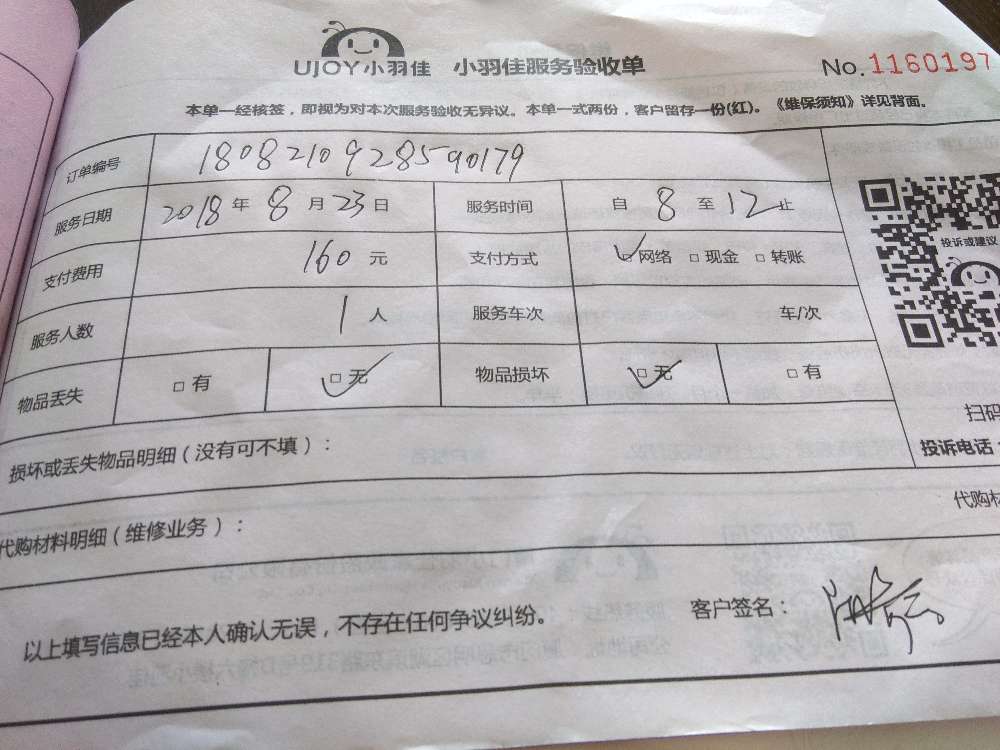 UJOY小羽佳 小羽佳服务验收单 No.1160197
本单一经核签，即视为对本次服务验收无异议。本单一式两份，客户留存一份(红)。《维保须知》详见背面。
订单编号 18082109285590179
服务日期 2018年8月23日 服务时间 自8至12止
支付费用 160元 支付方式 网络 现金 转账
投诉或建议
服务人数 1人 服务车次 车/次
物品丢失 有 无 物品损坏 无 有
扫码
损坏或丢失物品明细（没有可不填）： 投诉电话：
代购材料明细（维修业务）： 代购材
以上填写信息已经本人确认无误，不存在任何争议纠纷。 客户签名：